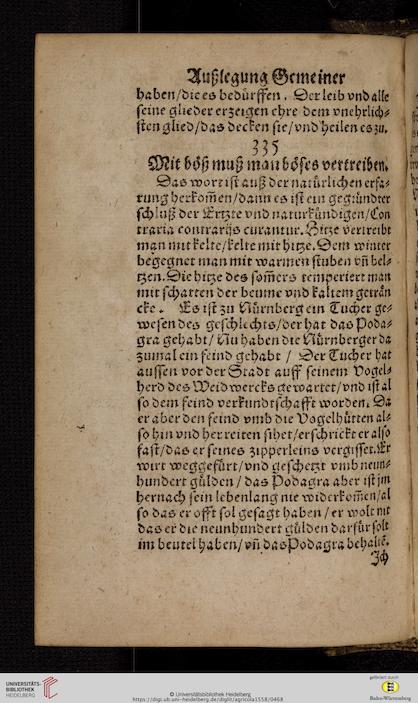 Außlegung Gemeiner
haben/die es bedürffen. Der leib vnd alle
seine glieder erzeigen ehre dem vnehrlich⸗
sten glied/das decken sie/vnd heilen es zu.
335
Mit böß muß man böses vertreiben.
Das wort ist auß der natürlichen erfa⸗
rung herkom̃en/dann es ist ein gegründter
schluß der Ertzte vnd naturkündigen/Con
traria contrarijs curantur. Hitze vertreibt
man mit kelte/kelte mit hitze. Dem winter
begegnet man mit warmen stuben vñ bel⸗
tzen. Die hitze des som̃ers temperiert man
mit schatten der beume vnd kaltem geträn
cke. Es ist zu Nürnberg ein Tucher ge⸗
wesen des geschlechts/der hat das Poda⸗
gra gehabt/ Nu haben die Nürnberger da
zumal ein feind gehabt / Der Tucher hat
aussen vor der Stadt auff seinem Vogel⸗
herd des Weidwercks gewartet/vnd ist al
so dem feind verkundtschafft worden. Da
er aber den feind vmb die Vogelhütten al⸗
so hin vnd her reiten sihet/erschrickt er also
fast/das er seines zipperleins vergisset. Er
wirt weggefürt/vnd geschetzt vmb neun⸗
hundert gülden / das Podagra aber ist jm
hernach sein lebenlang nie widerkom̃en/al
so das er offt sol gesagt haben / er wolt nit
das er die neunhundert gülden darfür solt
im beutel haben/vñ das Podagra behaltẽ.
Jch
UNIVERSITÄTS-
BIBLIOTHEK
HEIDELBERG
© Universitätsbibliothek Heidelberg
https://digi.ub.uni-heidelberg.de/diglit/agricola1558/0468
gefördert durch
Baden-Württemberg